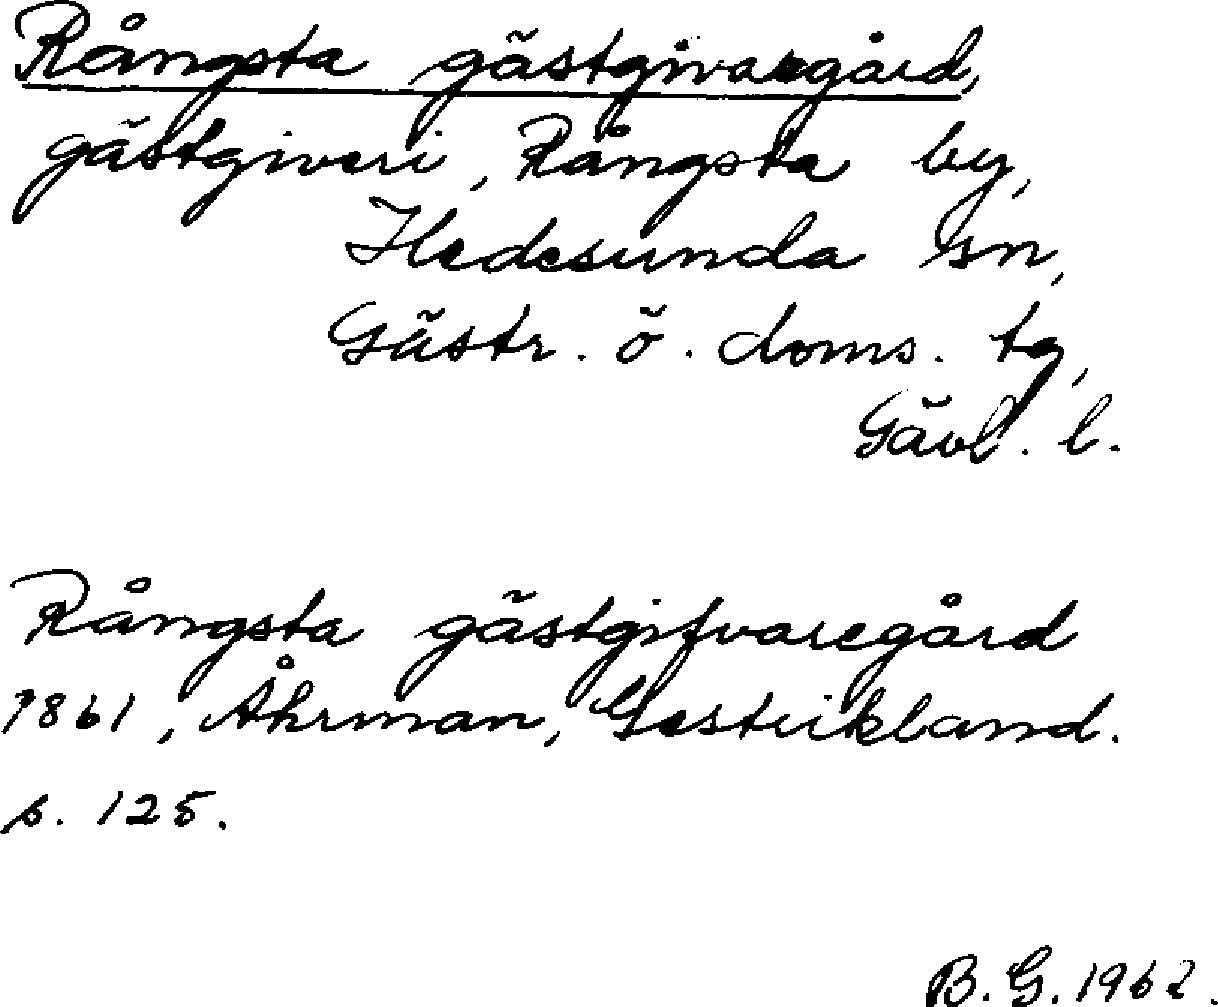 Rångsta gästgivaregård,
gästgiveri, Rångsta by,
Hedesunda sn,
Gästr. ö. doms. tg,
Gävl. l.
Rångsta gästgifvaregård
1861, Åhrman, Gestrikland.
s. 125.
B. G. 1962.